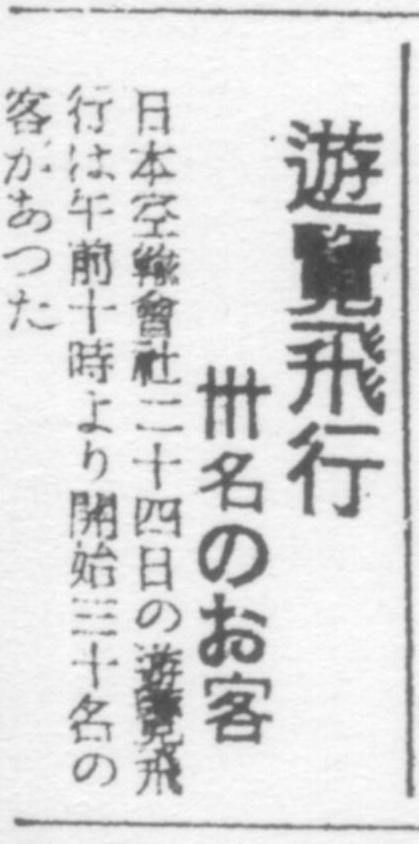 遊覽飛行
卅名のお客
日本空輸會社二十四日の遊覽飛
行は午前十時より開始三十名の
客があつた